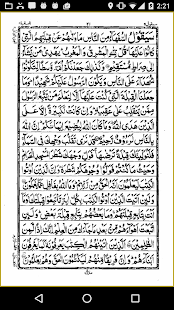 2:21
سَيَقُولُ السُّفَهَآءُ مِنَ النَّاسِ مَا وَلّٰىهُمْ عَنْ قِبْلَتِهِمُ الَّتِیْ
كَانُوْا عَلَيْهَا قُلْ لِّلّٰهِ الْمَشْرِقُ وَالْمَغْرِبُ يَهْدِیْ مَنْ يَّشَآءُ
اِلٰی صِرَاطٍ مُّسْتَقِيْمٍ وَكَذٰلِكَ جَعَلْنٰكُمْ اُمَّةً وَّسَطًا لِّتَكُوْنُوْا
شُهَدَآءَ عَلَی النَّاسِ وَيَكُوْنَ الرَّسُوْلُ عَلَيْكُمْ شَهِيْدًا وَمَا جَعَلْنَا
الْقِبْلَةَ الَّتِیْ كُنْتَ عَلَيْهَآ اِلَّا لِنَعْلَمَ مَنْ يَّتَّبِعُ الرَّسُوْلَ مِمَّنْ
يَّنْقَلِبُ عَلٰی عَقِبَيْهِ وَاِنْ كَانَتْ لَكَبِيْرَةً اِلَّا عَلَی الَّذِيْنَ
هَدَی اللّٰهُ وَمَا كَانَ اللّٰهُ لِيُضِيْعَ اِيْمَانَكُمْ اِنَّ اللّٰهَ بِالنَّاسِ
لَرَءُوْفٌ رَّحِيْمٌ قَدْ نَرٰی تَقَلُّبَ وَجْهِكَ فِی السَّمَآءِ فَلَنُوَلِّيَنَّكَ
قِبْلَةً تَرْضٰىهَا فَوَلِّ وَجْهَكَ شَطْرَ الْمَسْجِدِ الْحَرَامِ
وَحَيْثُ مَا كُنْتُمْ فَوَلُّوْا وُجُوْهَكُمْ شَطْرَهٗ وَاِنَّ الَّذِيْنَ اُوْتُوا
الْكِتٰبَ لَيَعْلَمُوْنَ اَنَّهُ الْحَقُّ مِنْ رَّبِّهِمْ وَمَا اللّٰهُ بِغَافِلٍ عَمَّا يَعْمَلُوْنَ
وَلَئِنْ اَتَيْتَ الَّذِيْنَ اُوْتُوا الْكِتٰبَ بِكُلِّ اٰيَةٍ مَّا تَبِعُوْا قِبْلَتَكَ
وَمَآ اَنْتَ بِتَابِعٍ قِبْلَتَهُمْ وَمَا بَعْضُهُمْ بِتَابِعٍ قِبْلَةَ بَعْضٍ وَلَئِنِ
اتَّبَعْتَ اَهْوَآءَهُمْ مِّنْ بَعْدِ مَا جَآءَكَ مِنَ الْعِلْمِ اِنَّكَ اِذًا لَّمِنَ
الظّٰلِمِيْنَ اَلَّذِيْنَ اٰتَيْنٰهُمُ الْكِتٰبَ يَعْرِفُوْنَهٗ كَمَا يَعْرِفُوْنَ